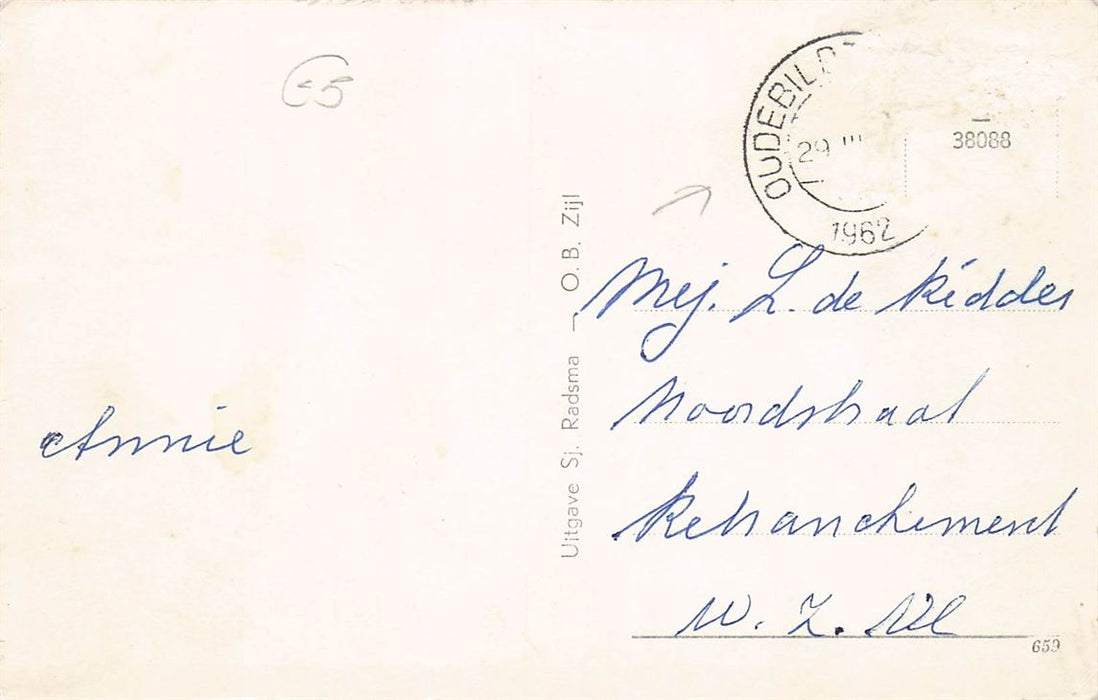 65
OUDEBILD
29 III
1962
38088
Uitgave Sj. Radsma — O.B. Zijl
Mej. L. de Ridder
Noordstraat
Retranchement
W. Z. Vl
Annie
659